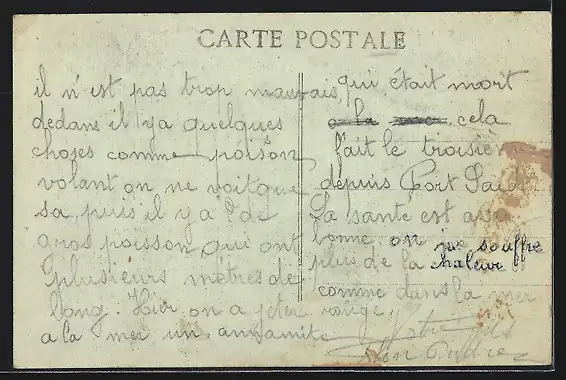 CARTE POSTALE
il n'est pas trop mauvais
dedans il y a quelques
choses comme poison
volant on ne voit que
sa, puis il y a de
gros poisson qui ont
plusieurs mètres de
long. Hier on a jeter
a la mer un annamite
qui était mort
a la cela
fait le troisième
depuis Port Said
La sante est assé
bonne on ne souffre
plus de la chaleur
comme dans la mer
rouge.
Votre fils